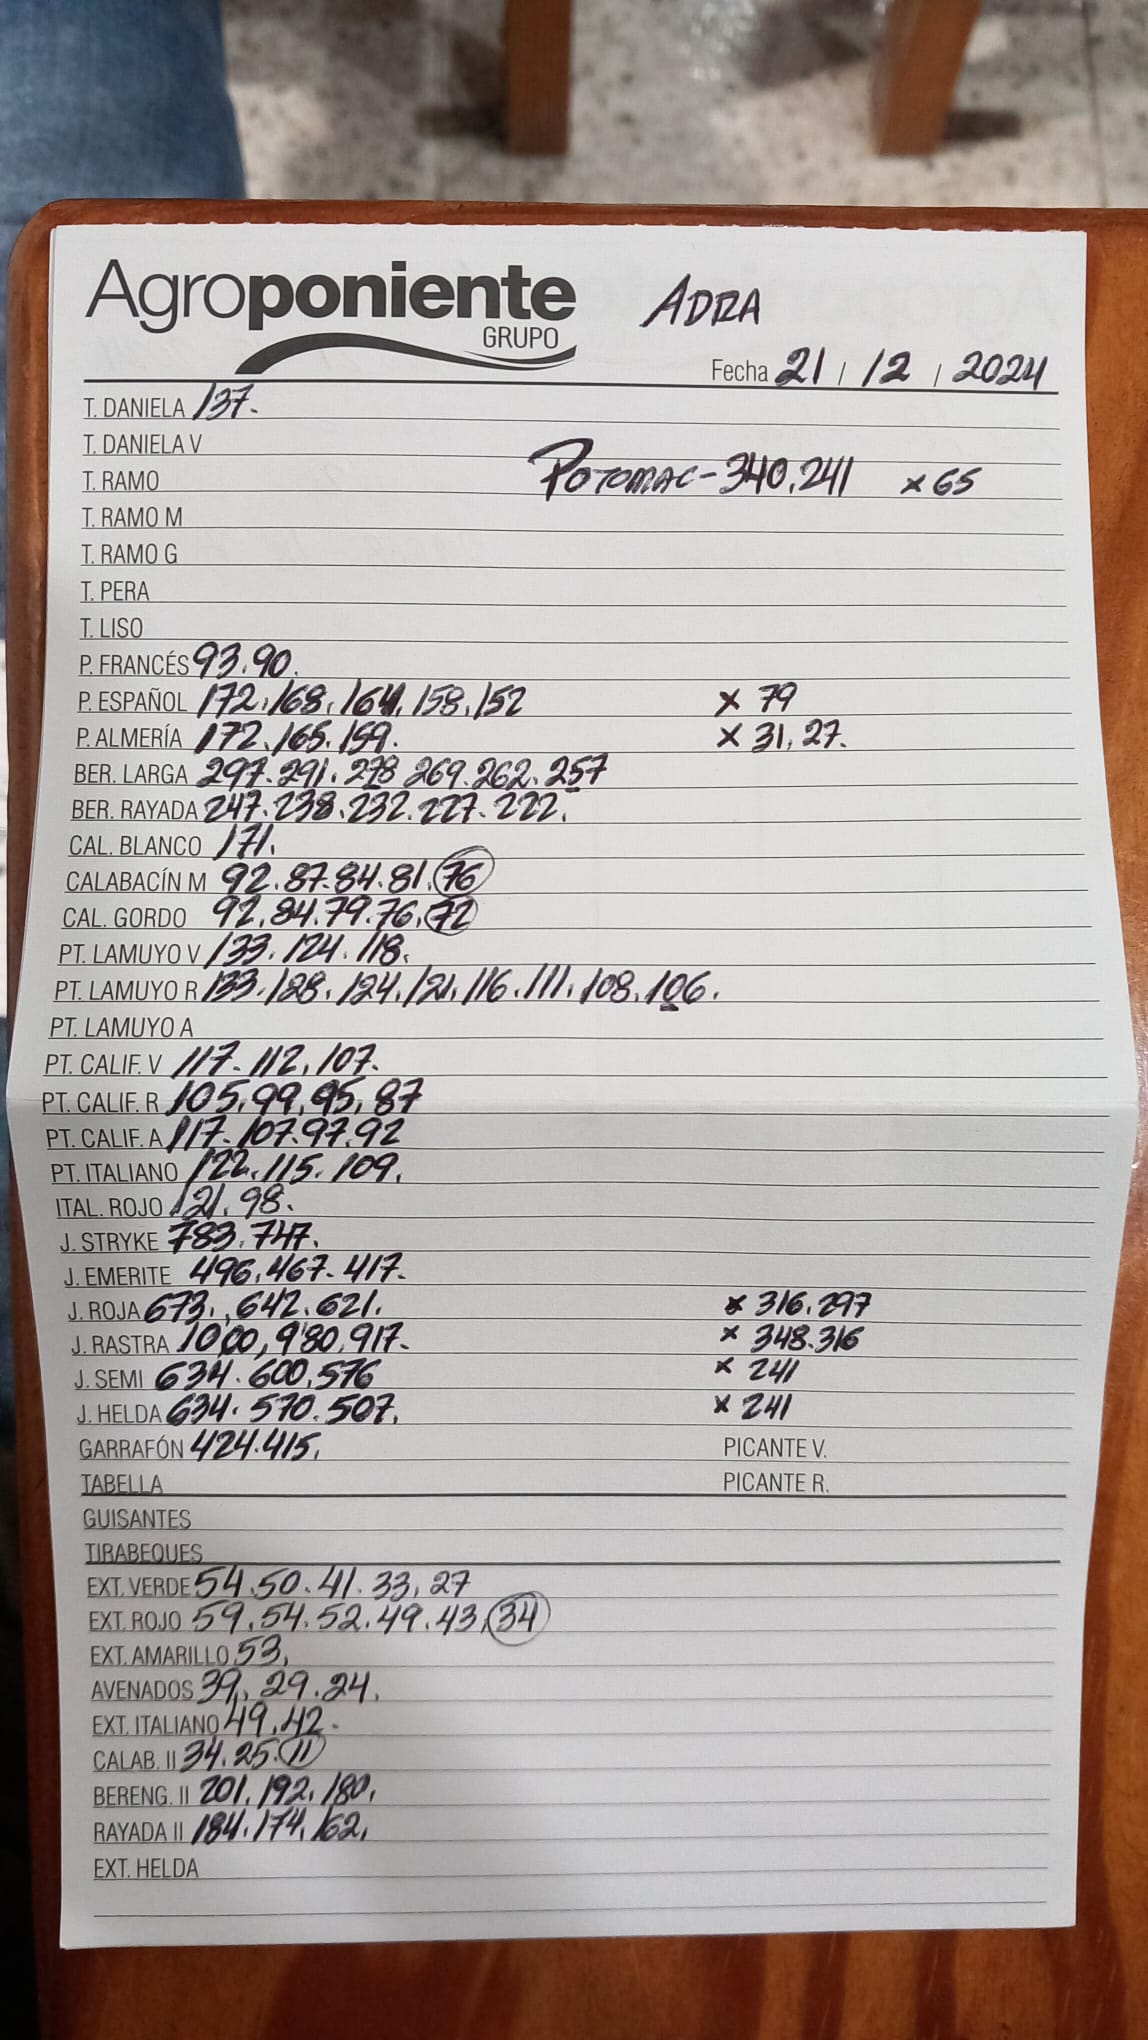 Agroponiente
GRUPO
ADRA
Fecha 21 / 12 / 2024
T. DANIELA 137.
T. DANIELA V
T. RAMO POTOMAC - 340.241 x 65
T. RAMO M
T. RAMO G
T. PERA
T. LISO
P. FRANCÉS 93.90.
P. ESPAÑOL 172.168.164.158.152 x 79
P. ALMERÍA 172.165.159. x 31.27.
BER. LARGA 297.291.278 269.262.257
BER. RAYADA 247.238.232.227.222.
CAL. BLANCO 171.
CALABACÍN M 92.87.84.81.76
CAL. GORDO 92.84.79.76.72
PT. LAMUYO V 133.124.118.
PT. LAMUYO R 133.128.124.121.116.111.108.106.
PT. LAMUYO A
PT. CALIF. V 117.112.107.
PT. CALIF. R 105.99.95.87
PT. CALIF. A 117.107.97.92
PT. ITALIANO 122.115.109.
ITAL. ROJO 121.98.
J. STRYKE 783.747.
J. EMERITE 496.467.417.
J. ROJA 673.642.621. x 316.297
J. RASTRA 1000,980.917. x 348.316
J. SEMI 634.600.576 x 241
J. HELDA 634.570.507. x 241
GARRAFÓN 424.415. PICANTE V.
TABELLA PICANTE R.
GUISANTES
TIRABEQUES
EXT. VERDE 54.50.41.33.27
EXT. ROJO 59.54.52.49.43.34
EXT. AMARILLO 53.
AVENADOS 39.29.24.
EXT. ITALIANO 49.42.
CALAB. II 34.25.11
BERENG. II 201.192.180.
RAYADA II 184.174.162.
EXT. HELDA